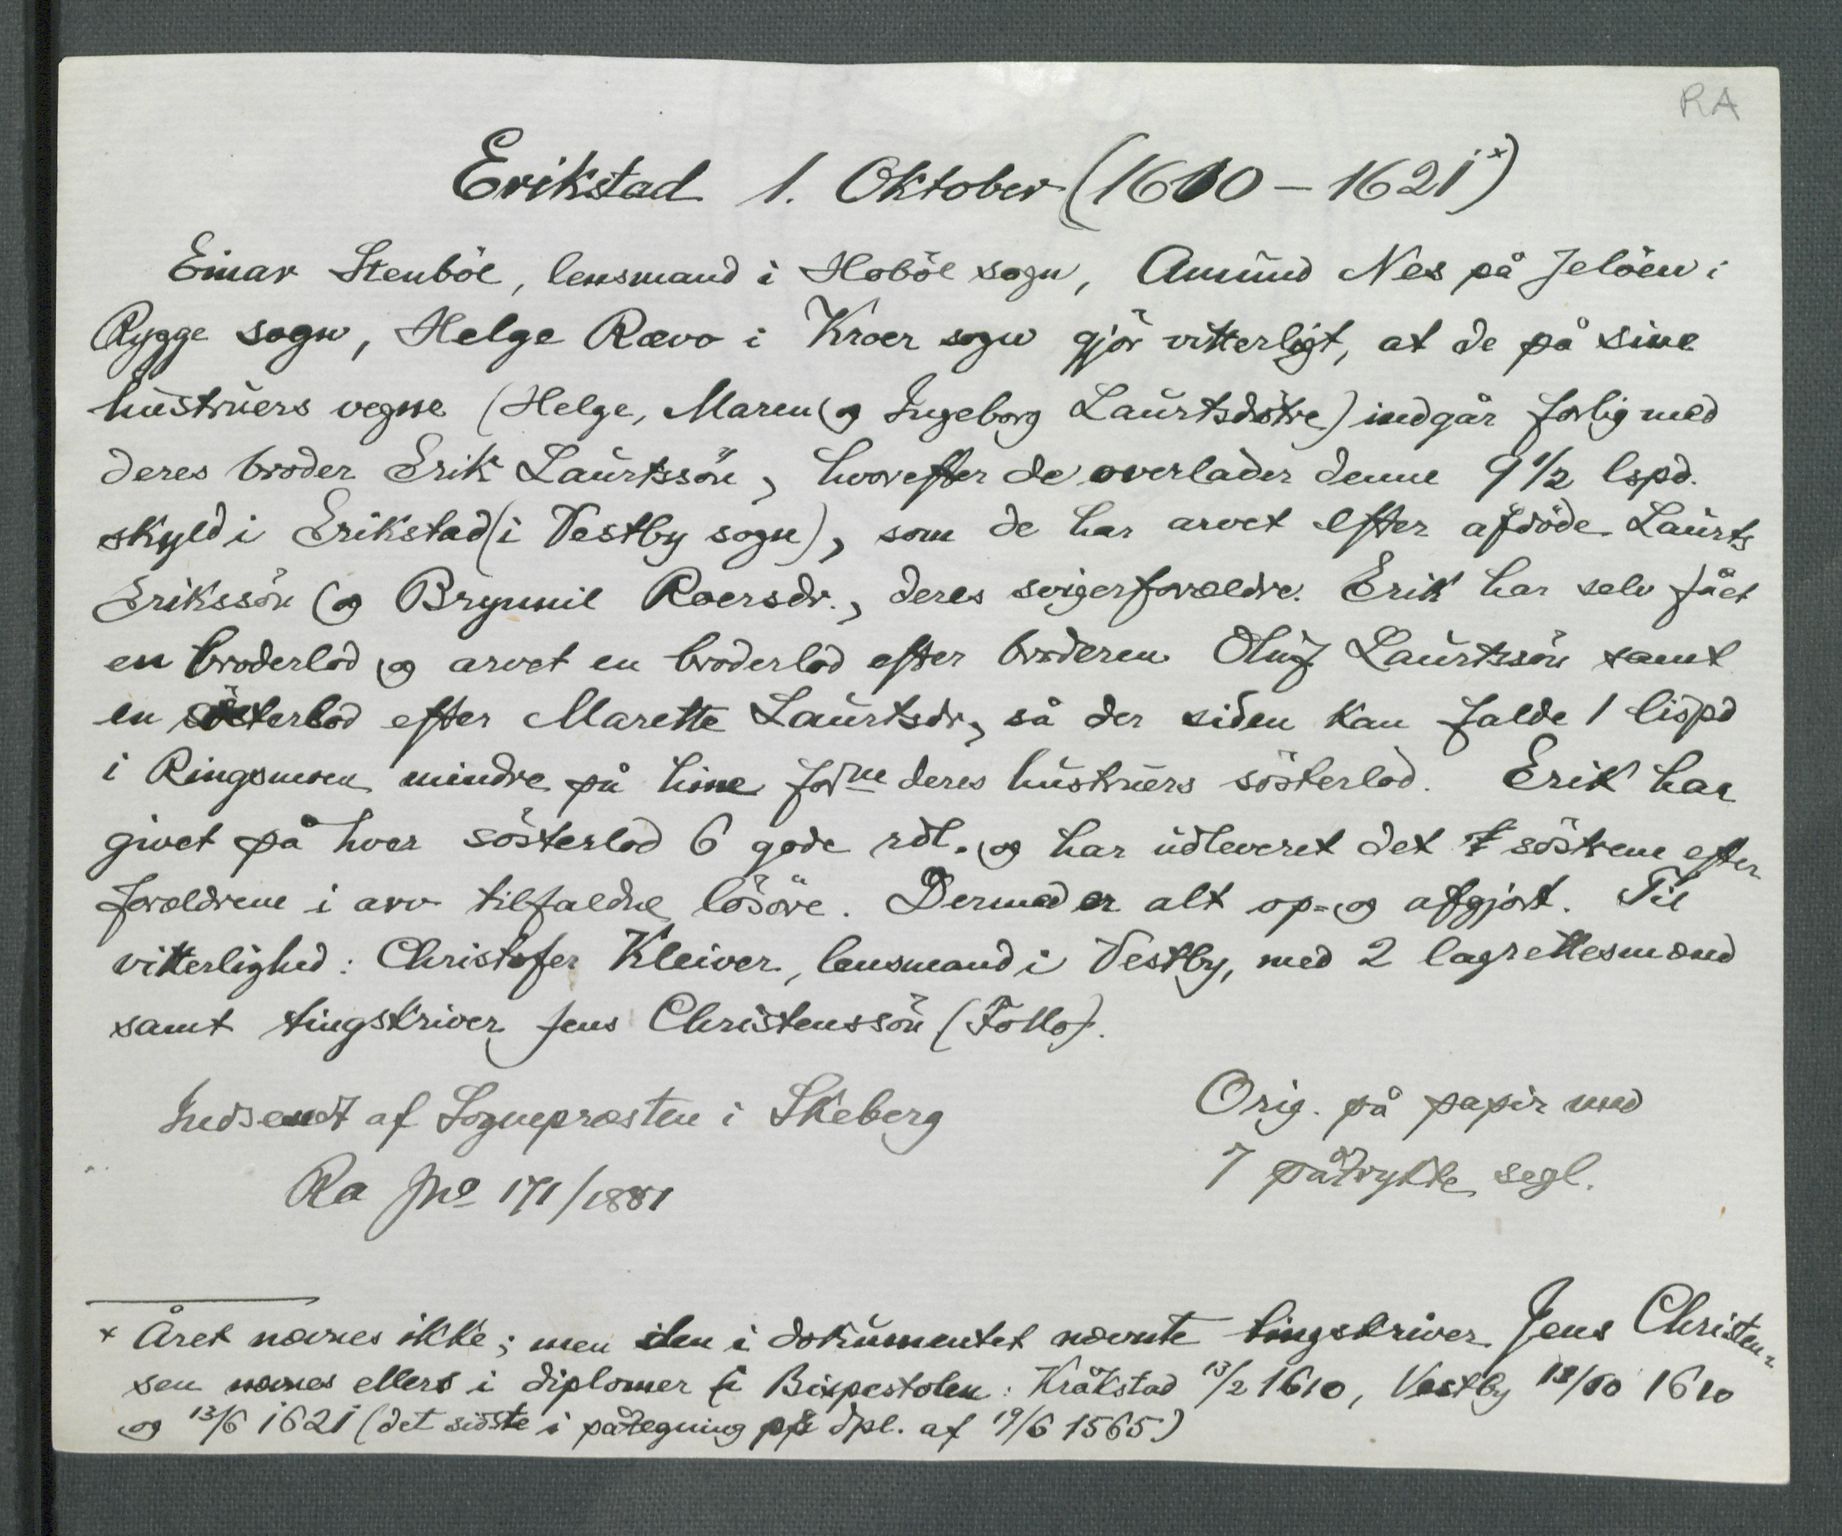 RA
Erikstad 1. Oktober (1610 – 1621 x)
Einar Stenböl, lensmand i Haböl sogn, Amund Nes på Jelöen i
Rygge sogn, Helge Rævo i Kroer sogn gjör vitterligt, at de på sine
hustruers vegne (Helge, Maren og Ingeborg Laurtsdötre) indgår forlig med
deres broder Erik Laurtssön, hvorefter de overlader denne 9 1/2 lspd.
skyld i Erikstad (i Vestby sogn), som de har arvet efter afdöde Laurts
Erikssön og Brynnil Roersdr., deres svigerforældre. Erik har selv fået
en broderlod og arvet en broderlod efter broderen Oluf Laurtssön samt
en sösterlod efter Marette Laurtsdr, så der siden kan falde 1 lispd
i Ringsmoen mindre på hine forne deres hustruers sösterlod. Erik har
givet på hver sösterlod 6 gode rdl. og har udleveret det söstrene efter
forældrene i arv tilfaldne lösöre. Dermed er alt op- og afgjort. Til
vitterlighed: Christofer Kleiver, lensmand i Vestby, med 2 lagrettesmænd
samt tingskriver Jens Christenssön (Follo).
Indsendt af Sognepræsten i Skeberg
Ra Jno 171/1881
Orig. på papir med
7 påtrykte segl.
x Året nævnes ikke; men den i dokumentet nævnte tingskriver Jens Christen-
sen nævnes ellers i diplomer i Bispestolen: Kråkstad 13/2 1610, Vestby 18/10 1610
og 13/6 1621 (det sidste i påtegning på dpl. af 19/6 1565)